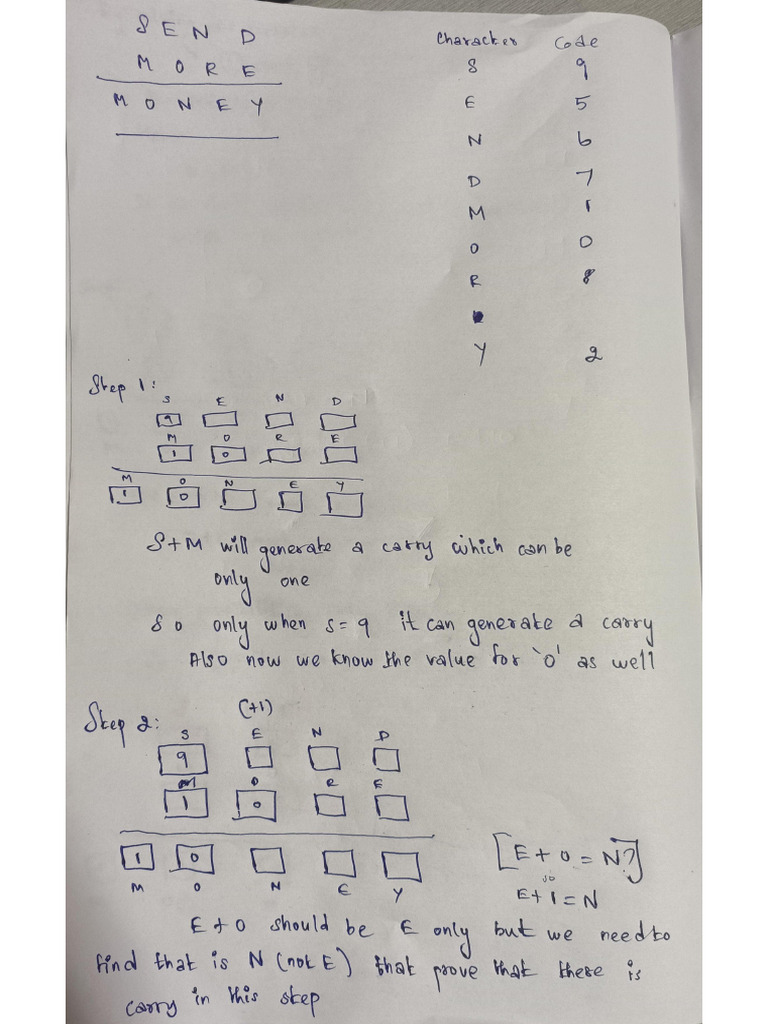 S E N D
M O R E
M O N E Y
Character Code
S 9
E 5
N 6
D 7
M 1
O 0
R 8
Y 2
Step 1:
S E N D
9
M O R E
1 0
M O N E Y
1 0
S+M will generate a carry which can be
only one
So only when s=9 it can generate a carry
Also now we know the value for 'o' as well
Step 2:
(+1)
S E N D
9
M O R E
1 0
1 0
M O N E Y
[E+0=N?]
so
E+1=N
E+0 should be E only but we need to
find that is N (not E) that prove that there is
carry in this step